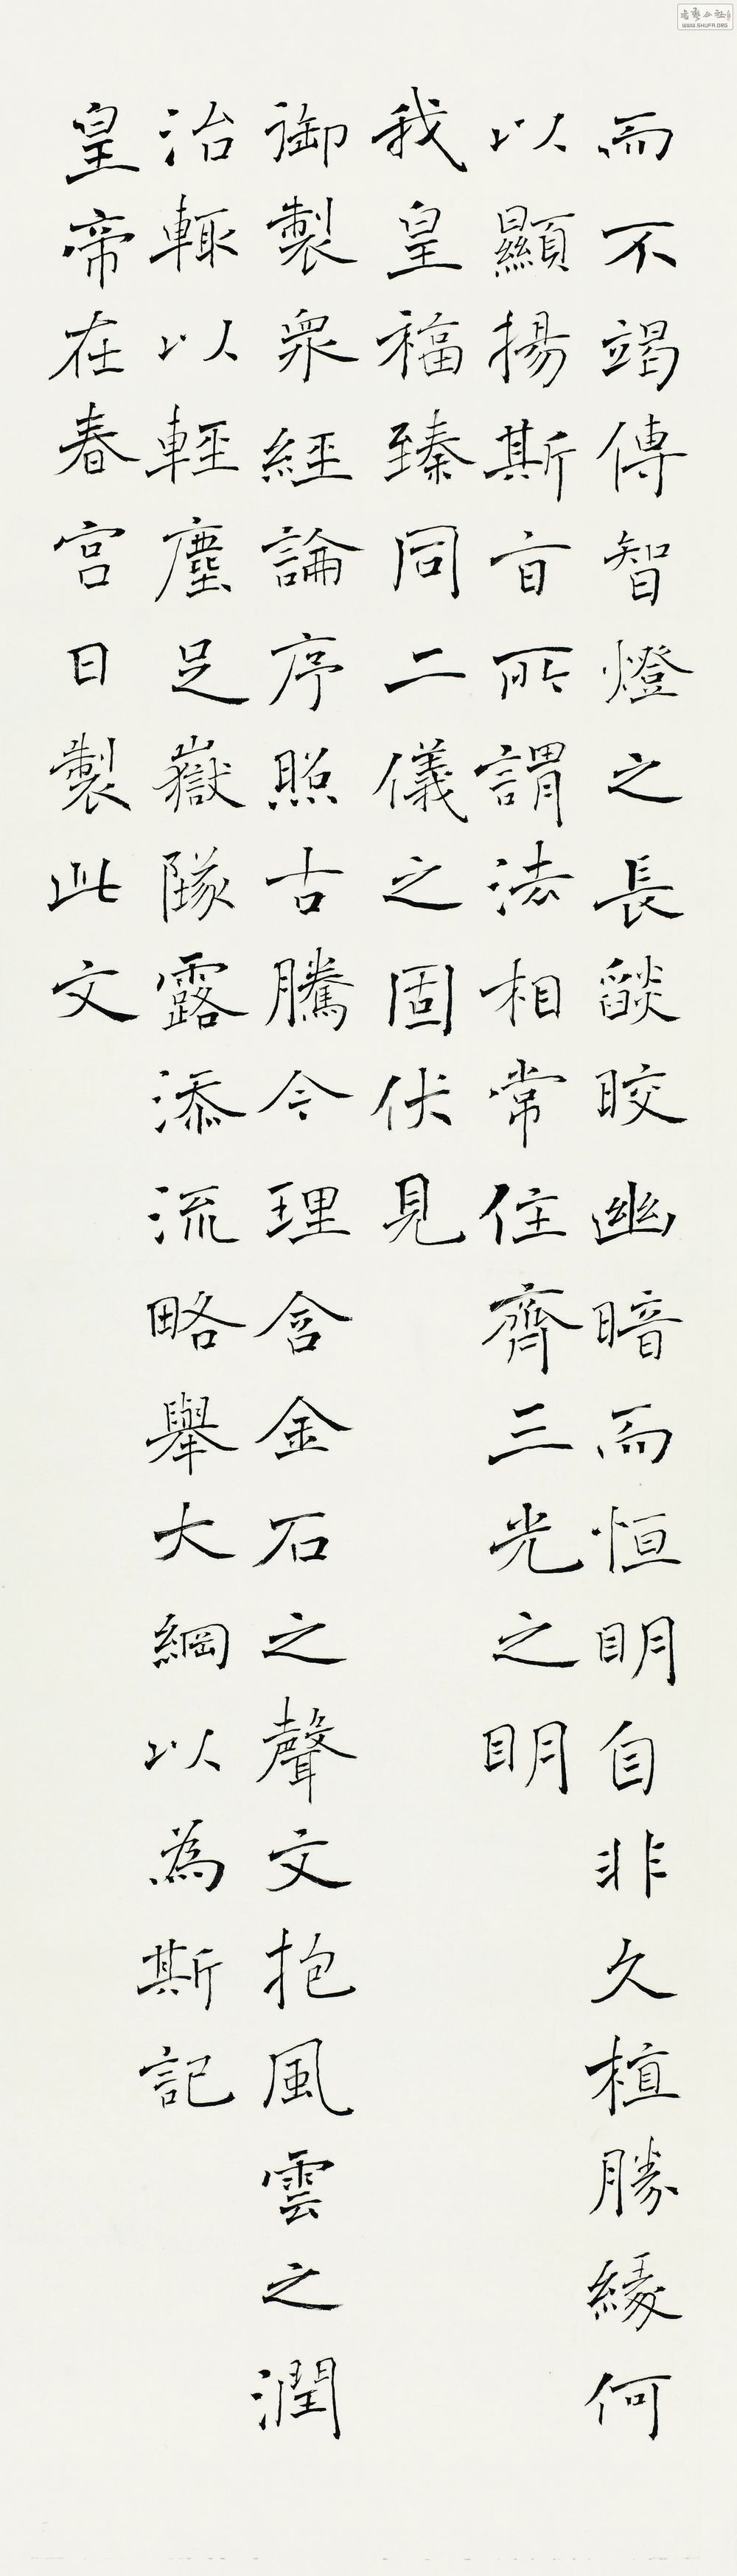 而不竭傳智燈之長燄皎幽暗而恒明自非久植勝緣何
以顯揚斯旨所謂法相常住齊三光之明
我皇福臻同二儀之固伏見
御製衆經論序照古騰今理含金石之聲文抱風雲之潤
治輙以輕塵足嶽墜露添流略舉大綱以為斯記
皇帝在春宮日製此文
WWW.SHUFA.ORG